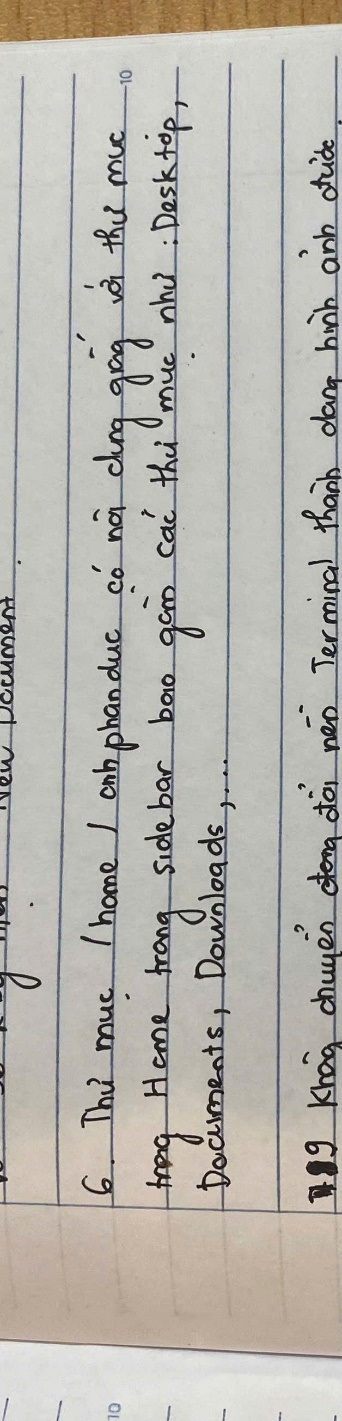 New Document
6. Thư mục /home/anhphanduc có nội dung giống với thư mục
trong Home trong sidebar bao gồm các thư mục như : Desktop,
Documents, Downloads,...
9 Không chuyển đổi nền Terminal thành dạng hình ảnh được.
10
10